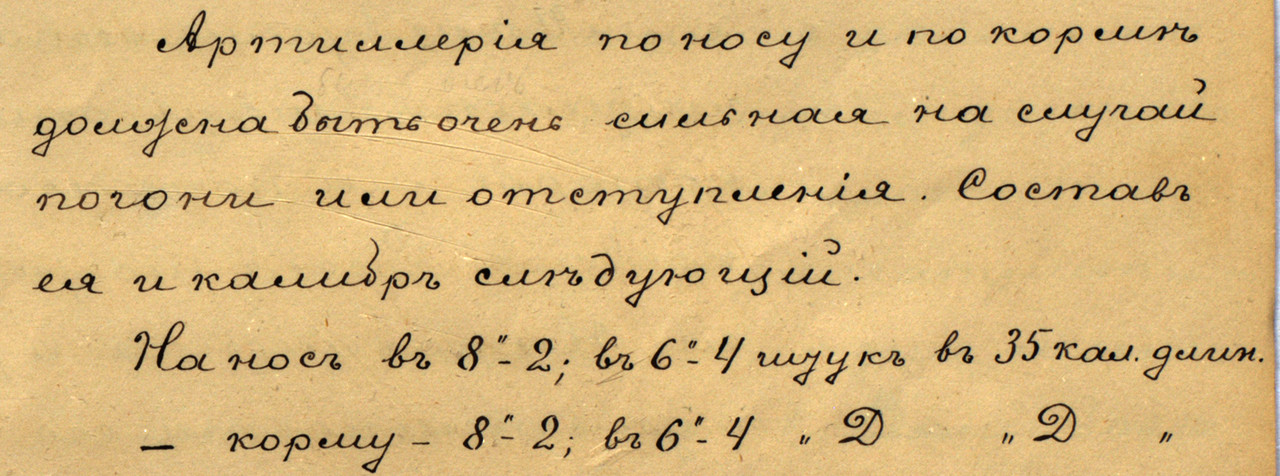 Артиллерія по носу и по кормѣ
должна быть очень сильная на случай
погони или отступленія. Составъ
ея и калибръ слѣдующій.
На носъ въ 8"- 2; въ 6"- 4 штукъ въ 35 кал. длин.
— корму - 8"- 2; въ 6"- 4 „ D „ D „